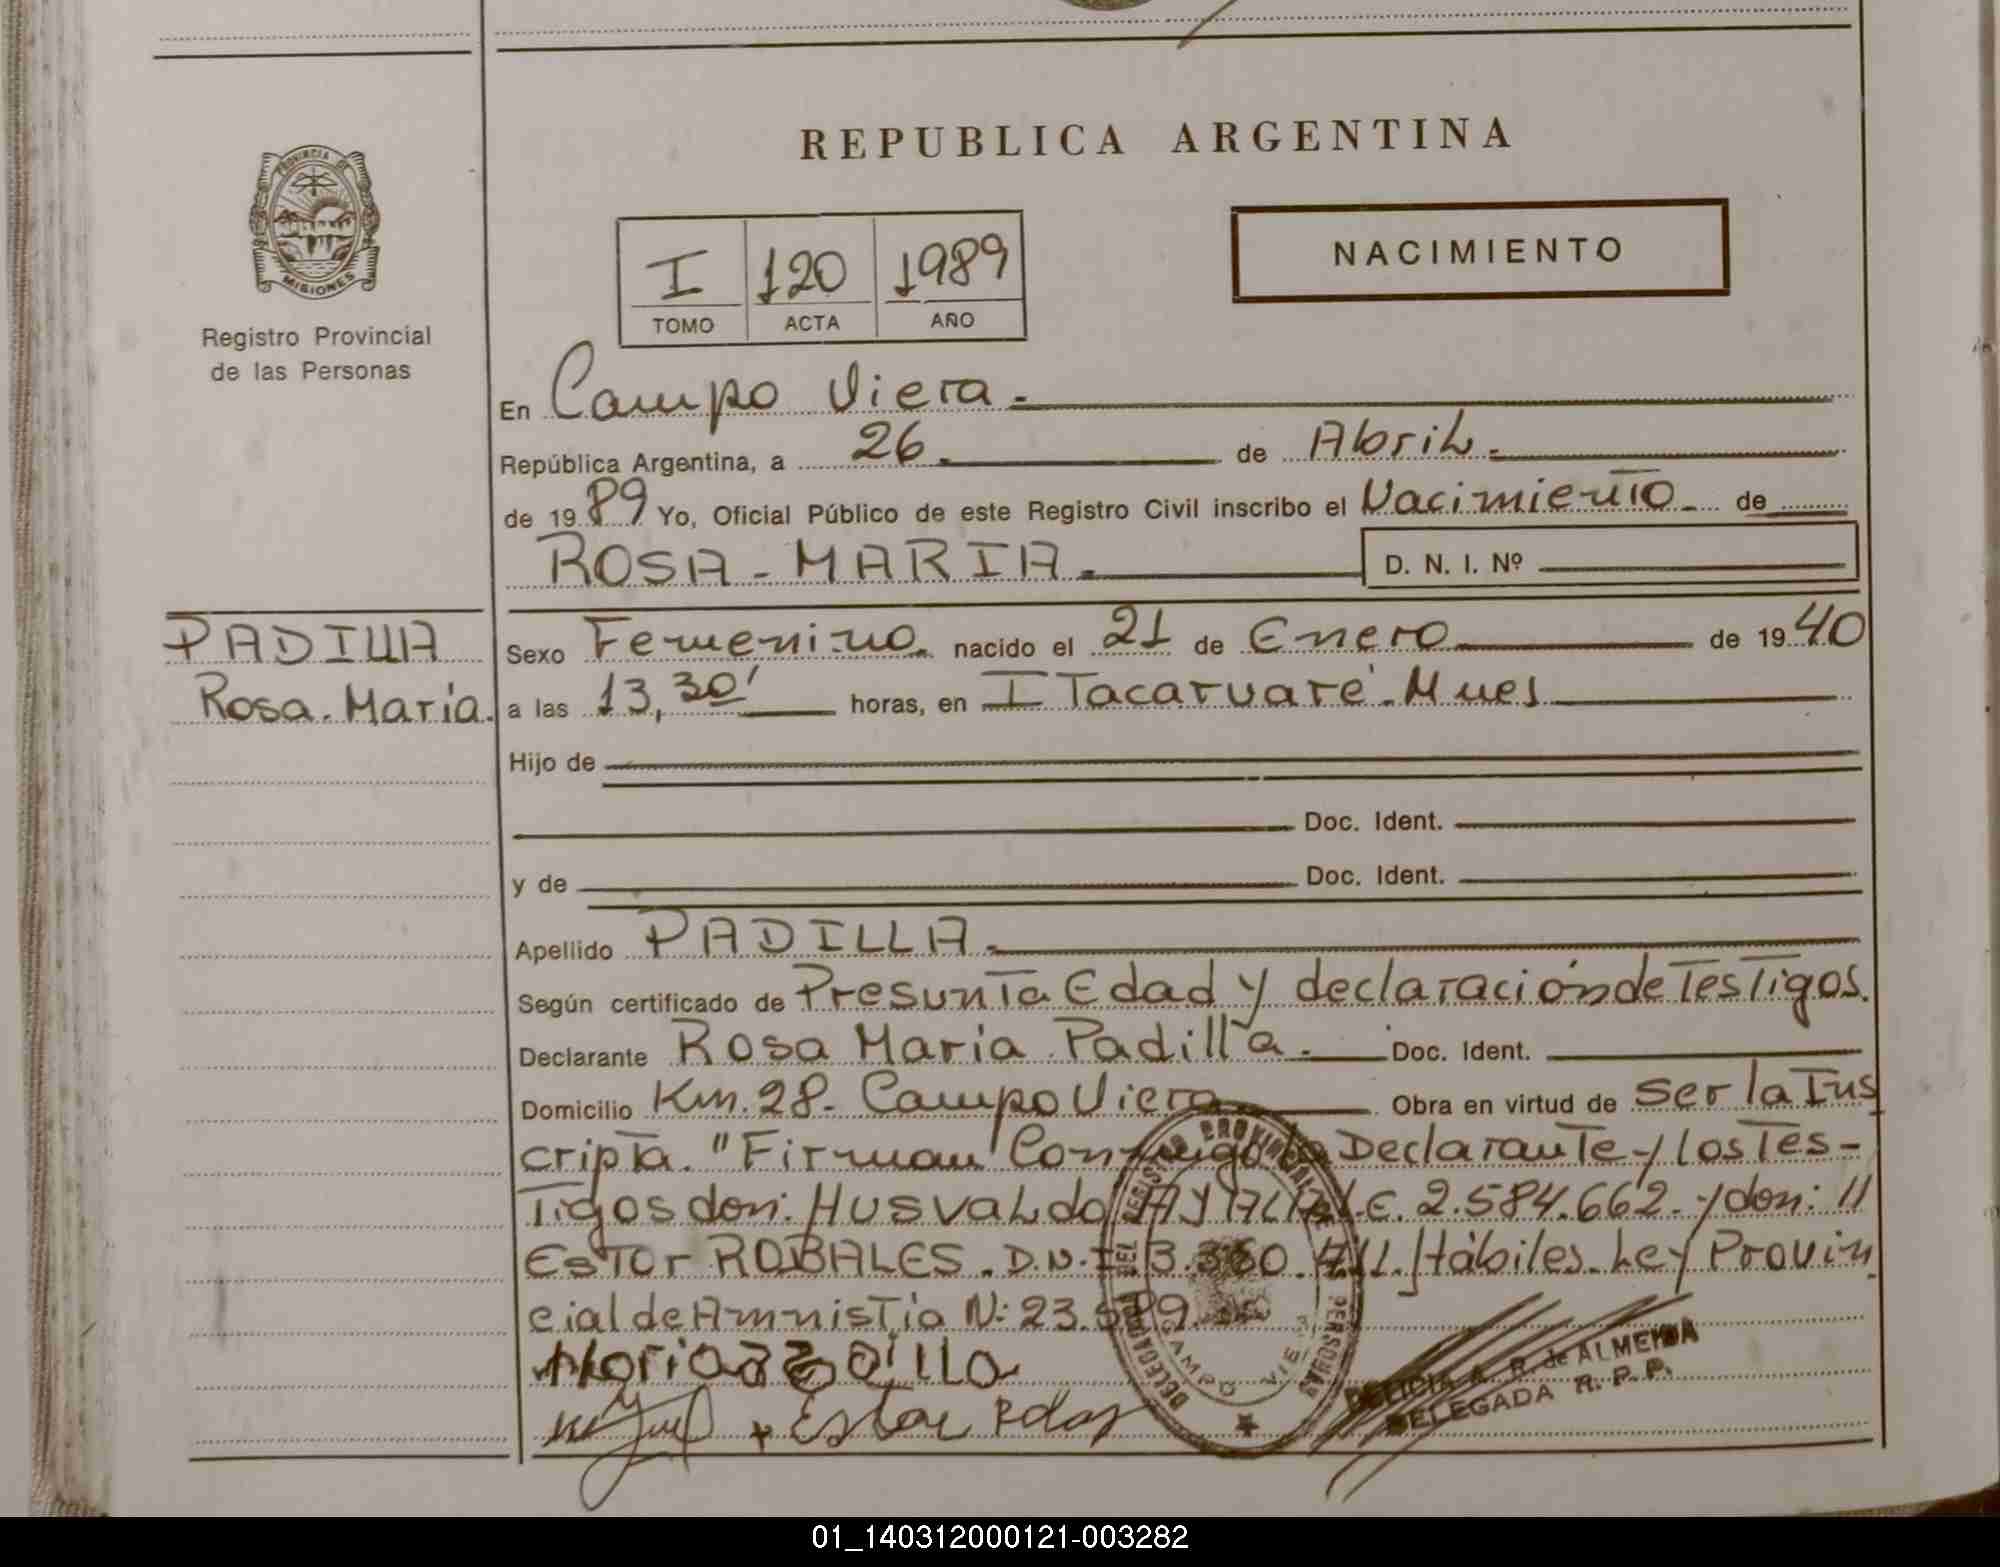 REPUBLICA ARGENTINA
PROVINCIA DE
MISIONES
Registro Provincial
de las Personas
I 120 1989
TOMO ACTA AÑO
NACIMIENTO
En Campo Viera.
República Argentina, a 26 de Abril.
de 1989 Yo, Oficial Público de este Registro Civil inscribo el Nacimiento de
ROSA - MARIA. D. N. I. Nº
PADILLA
Rosa. María.
Sexo Femenino. nacido el 21 de Enero de 1940
a las 13,30' horas, en ITacaruaré. Mnes
Hijo de
Doc. Ident.
y de Doc. Ident.
Apellido PADILLA.
Según certificado de Presunta Edad y declaración de Testigos.
Declarante Rosa María Padilla. Doc. Ident.
Domicilio Km. 28. Campo Viera Obra en virtud de ser la Ins
cripta. "Firman Conmigo la Declarante y los Tes-
Tigos don: HUSVALdo AYALA L.E. 2.584.662. y don:
EsTor ROBALES. D.N.I. Hábiles. Ley Provin
cial de AmnisTía N: 23.
DELEGADA DEL REGISTRO PROVINCIAL PERSONAS
CAMPO VIERA
DELICIA A. R. de ALMEIDA
DELEGADA R. P. P.
01_140312000121-003282